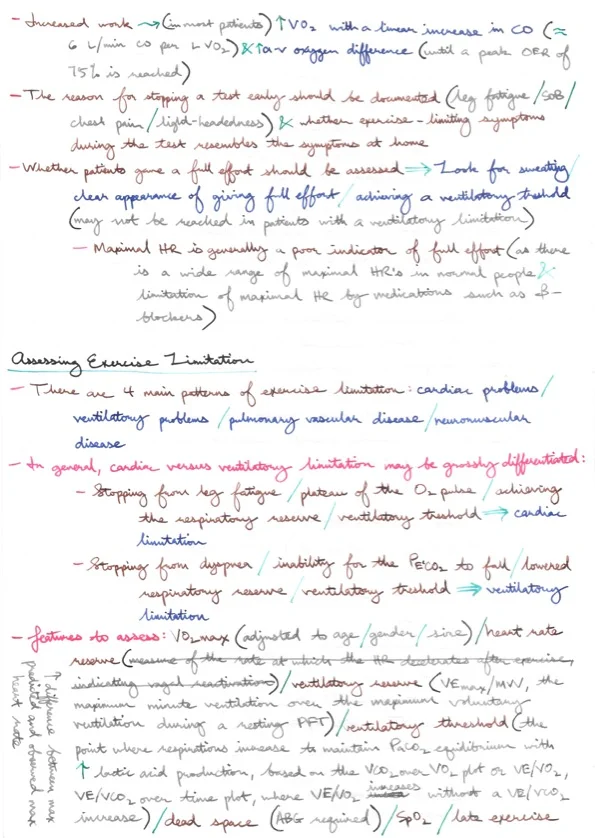 - Increased work ⤳ (in most patients) ↑ VO₂ with a linear increase in CO (≈
6 L/min CO per L VO₂) & ↑ a-v oxygen difference (until a peak OER of
75% is reached)
- The reason for stopping a test early should be documented (leg fatigue/SOB/
chest pain/light-headedness) & whether exercise-limiting symptoms
during the test resembles the symptoms at home
- Whether patients gave a full effort should be assessed ⇒ Look for sweating/
clear appearance of giving full effort/achieving a ventilatory treshold
(may not be reached in patients with a ventilatory limitation)
- Maximal HR is generally a poor indicator of full effort (as there
is a wide range of maximal HR's in normal people &
limitation of maximal HR by medications such as β-
blockers)
Assessing Exercise Limitation
- There are 4 main patterns of exercise limitation: cardiac problems/
ventilatory problems/pulmonary vascular disease/neuromuscular
disease
- In general, cardiac versus ventilatory limitation may be grossly differentiated:
- Stopping from leg fatigue/plateau of the O₂ pulse/achieving
the respiratory reserve/ventilatory treshold ⇒ cardiac
limitation
- Stopping from dyspnea/inability for the PE'CO₂ to fall/lowered
respiratory reserve/ventilatory treshold ⇒ ventilatory
limitation
- Features to assess: VO₂max (adjusted to age/gender/size)/heart rate
reserve (measure of the rate at which the HR decelerates after exercise,
indicating vagal reactivation)/ventilatory reserve (VEmax/MVV, the
maximum minute ventilation over the maximum voluntary
ventilation during a resting PFT)/ventilatory threshold (the
point where respirations increase to maintain PaCO₂ equilibrium with
↑ lactic acid production, based on the VCO₂ over VO₂ plot or VE/VO₂,
VE/VCO₂ over time plot, where VE/VO₂ increases without a VE/VCO₂
increase)/dead space (ABG required)/SpO₂/late exercise
↑ difference between max
predicted and observed max
heart rate